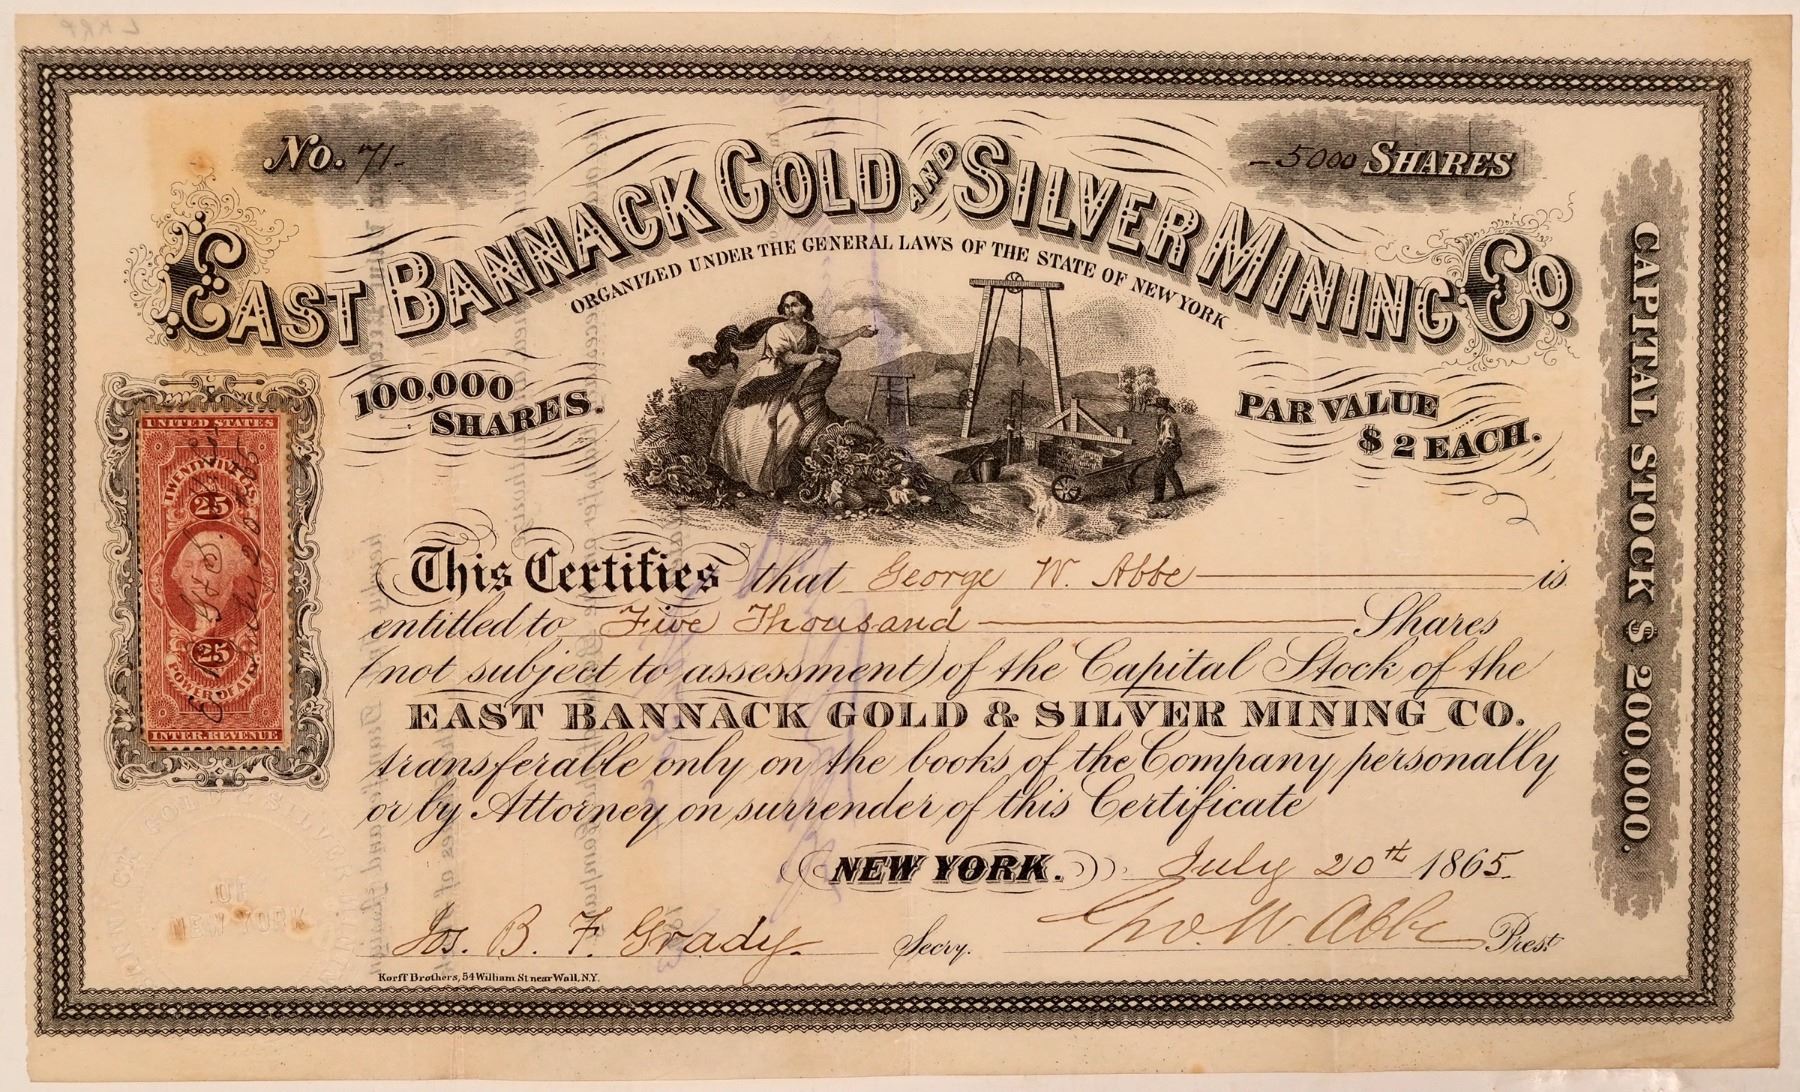 No. 71.
5000 SHARES
EAST BANNACK GOLD AND SILVER MINING CO.
ORGANIZED UNDER THE GENERAL LAWS OF THE STATE OF NEW YORK
100,000 SHARES.
PAR VALUE $2 EACH.
CAPITAL STOCK $ 200,000.
UNITED STATES
TWENTY FIVE CTS
25
25
POWER OF ATTY
INTER. REVENUE
This Certifies that George W. Abbe is
entitled to Five Thousand Shares
(not subject to assessment) of the Capital Stock of the
EAST BANNACK GOLD & SILVER MINING CO.
transferable only on the books of the Company personally
or by Attorney on surrender of this Certificate
NEW YORK. July 20th 1865.
OF
NEW YORK
Jos. B. F. Grady. Secry. Geo. W. Abbe Prest
Korff Brothers, 54 William St near Wall, N.Y.